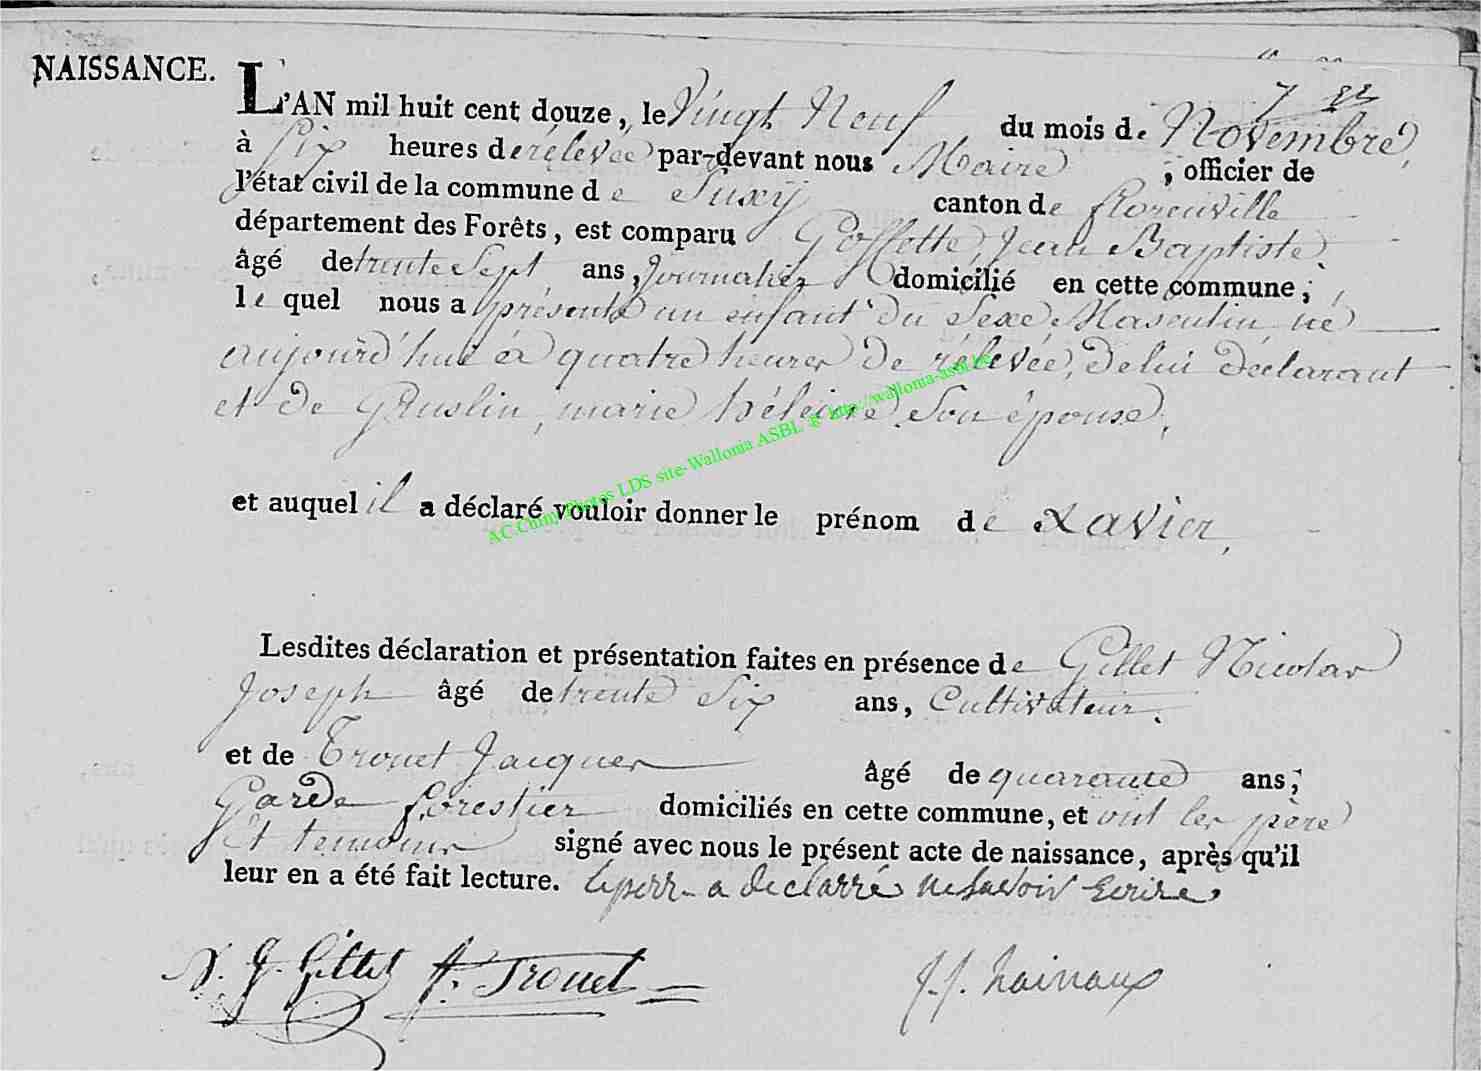 NAISSANCE.
7 22
L'AN mil huit cent douze, le Vingt Neuf du mois de Novembre,
à Six heures de rélevée par-devant nous Maire, officier de
l'état civil de la commune de Suxÿ canton de florenville
département des Forêts, est comparu Goffette, Jean Baptiste
âgé de trente Sept ans, Journalier domicilié en cette commune;
le quel nous a présenté un enfant du Sexe Masculin né
aujourd'hui à quatre heures de rélevée, de lui déclarant
et de Gruslin, marie héleine Son épouse,
AC.Chiny Photos LDS site-Wallonia ASBL @ http://wallonia-asbl.be
et auquel il a déclaré vouloir donner le prénom de Xavier,
Lesdites déclaration et présentation faites en présence de Gillet Nicolas
Joseph âgé de trente Six ans, Cultivateur.
et de Trouet Jacques âgé de quarante ans;
Garde forestier domiciliés en cette commune, et ont les père
Et temoins signé avec nous le présent acte de naissance, après qu'il
leur en a été fait lecture. le perr a declarré ne Savoir Ecrire
N. J. Gillet J. Trouet J. J. hainaux